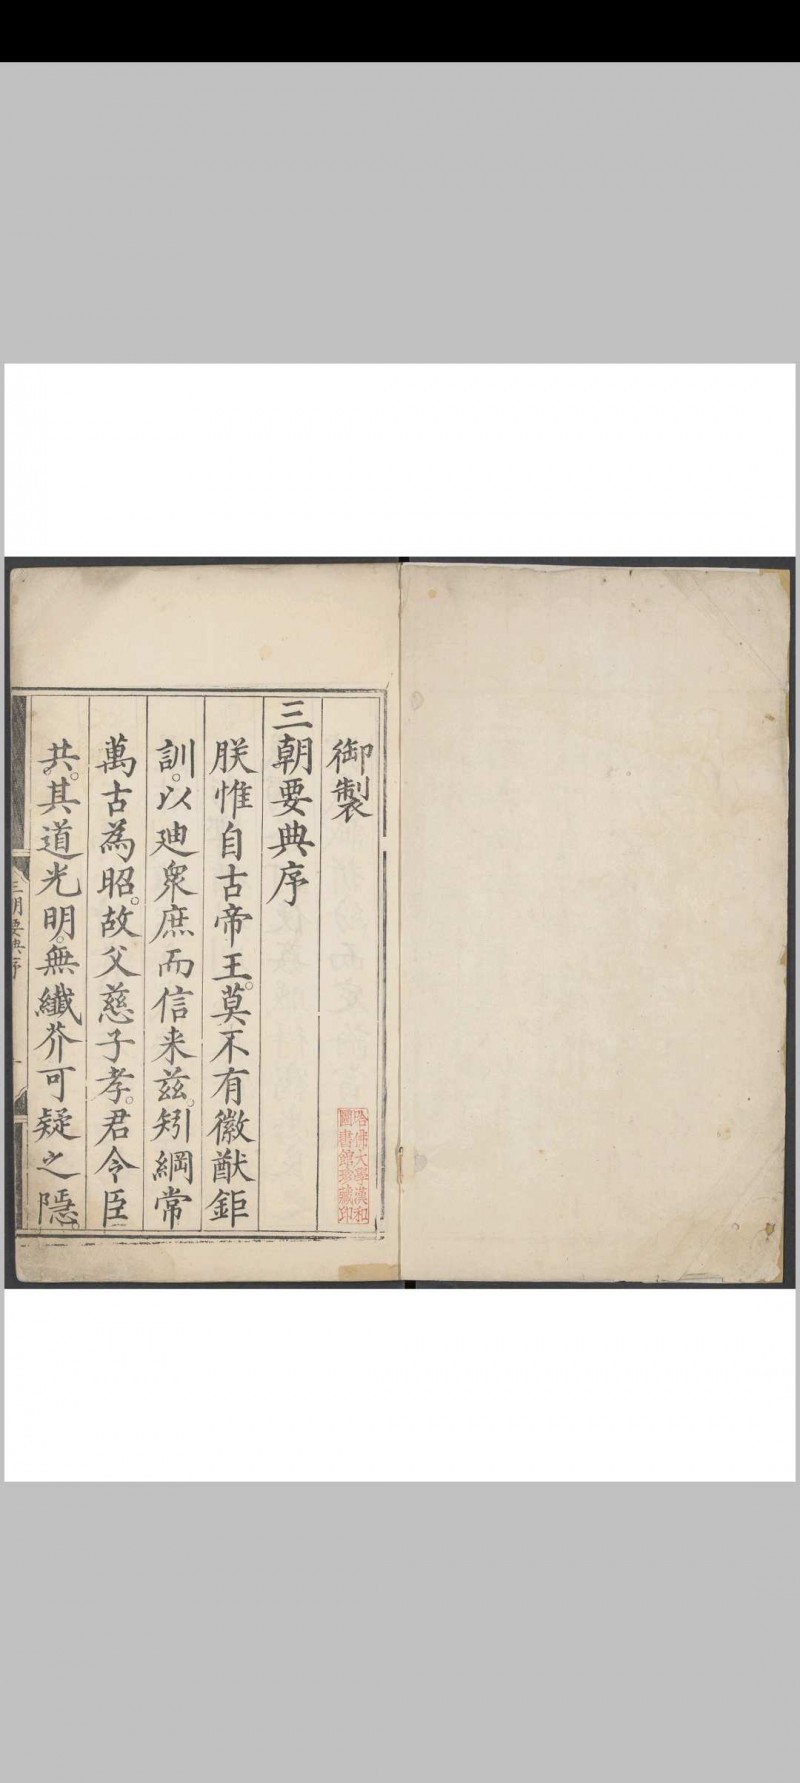 御製
三朝要典序
朕惟自古帝王。莫不有徽猷鉅
訓。以迪衆庶而信来茲。矧綱常
萬古為昭。故父慈子孝。君令臣
共。其道光明。無纖芥可疑之隱。
三朝要典序
哈佛大學漢和
圖書館珍藏印